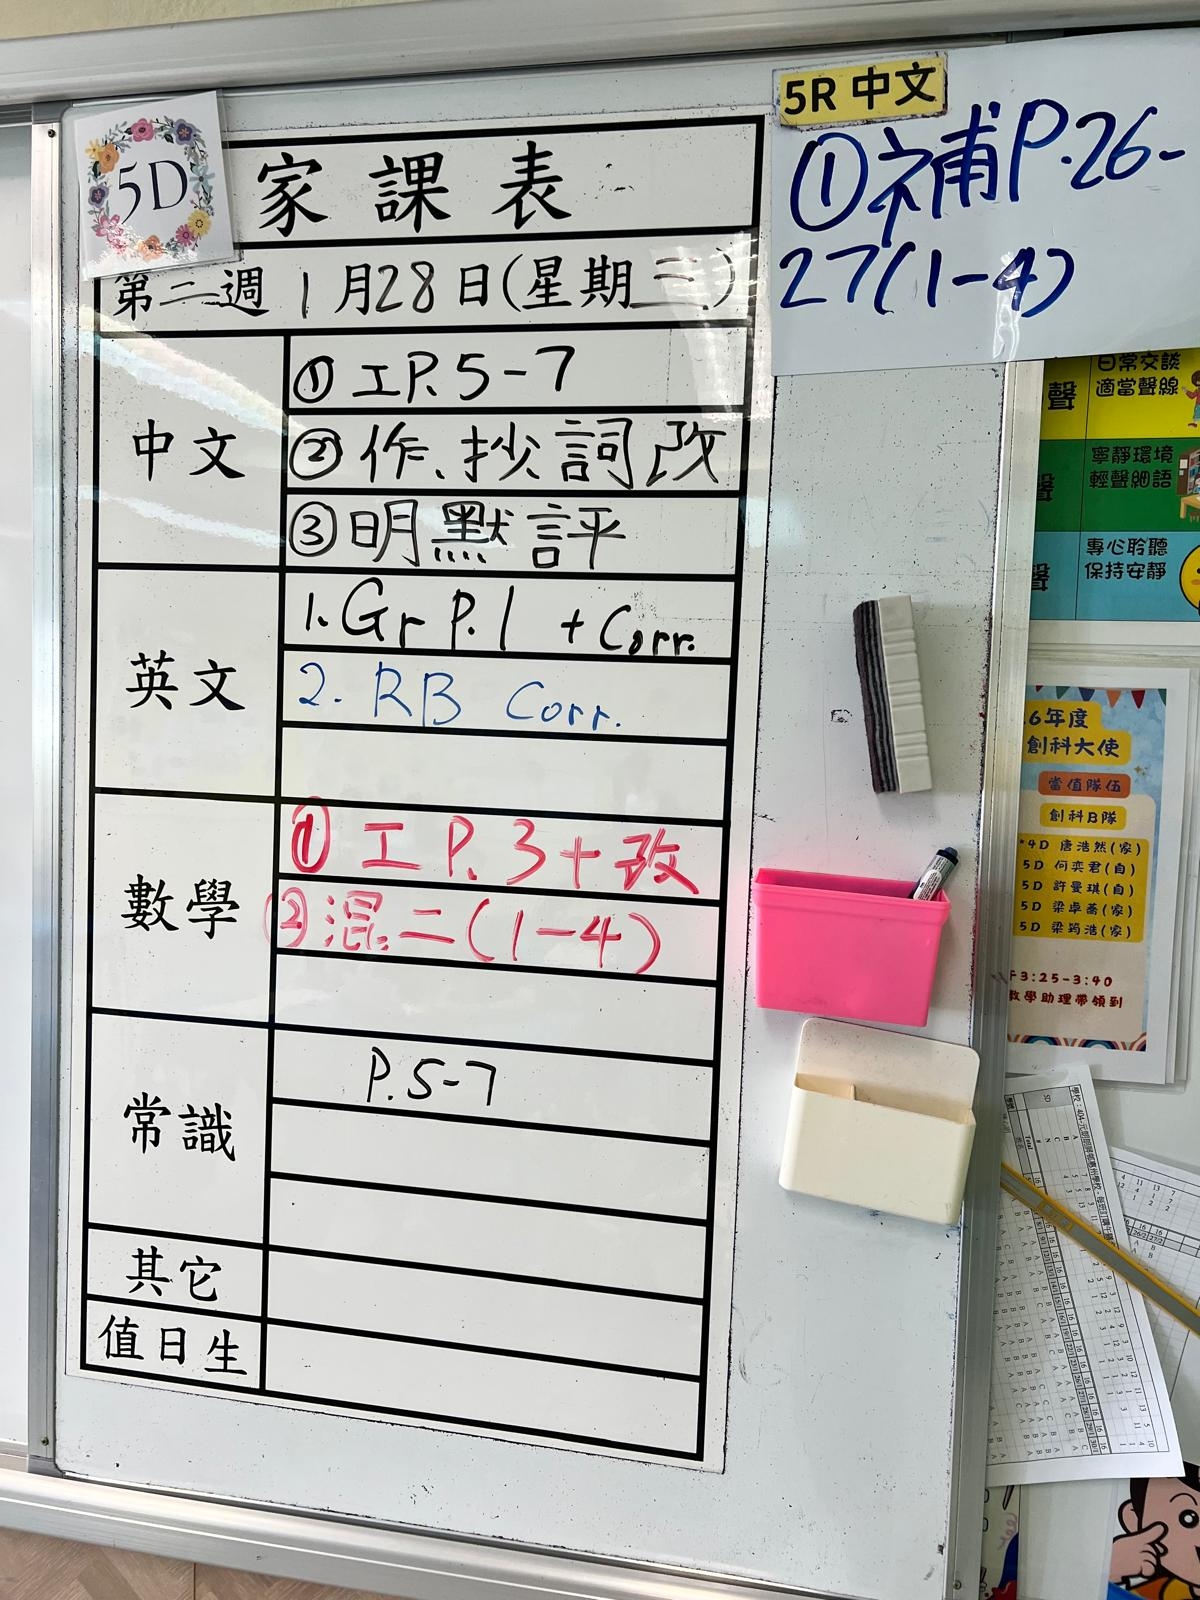 5D
家課表
第二週 1月28日(星期三)
中文
① 工P.5-7
② 作、抄詞改
③ 明默評
英文
1. Gr P.1 + Corr.
2. RB Corr.
數學
① 工 P.3+改
② 混二(1-4)
常識
P.5-7
其它
值日生
5R 中文
①補P.26-
27(1-4)
聲
日常交談
適當聲線
聲
寧靜環境
輕聲細語
聲
專心聆聽
保持安靜
6年度
創科大使
當值隊伍
創科B隊
*4D 唐浩然(家)
5D 何奕君(自)
5D 許曼琪(自)
5D 梁卓蕎(家)
5D 梁筠浩(家)
3:25-3:40
教學助理帶領到